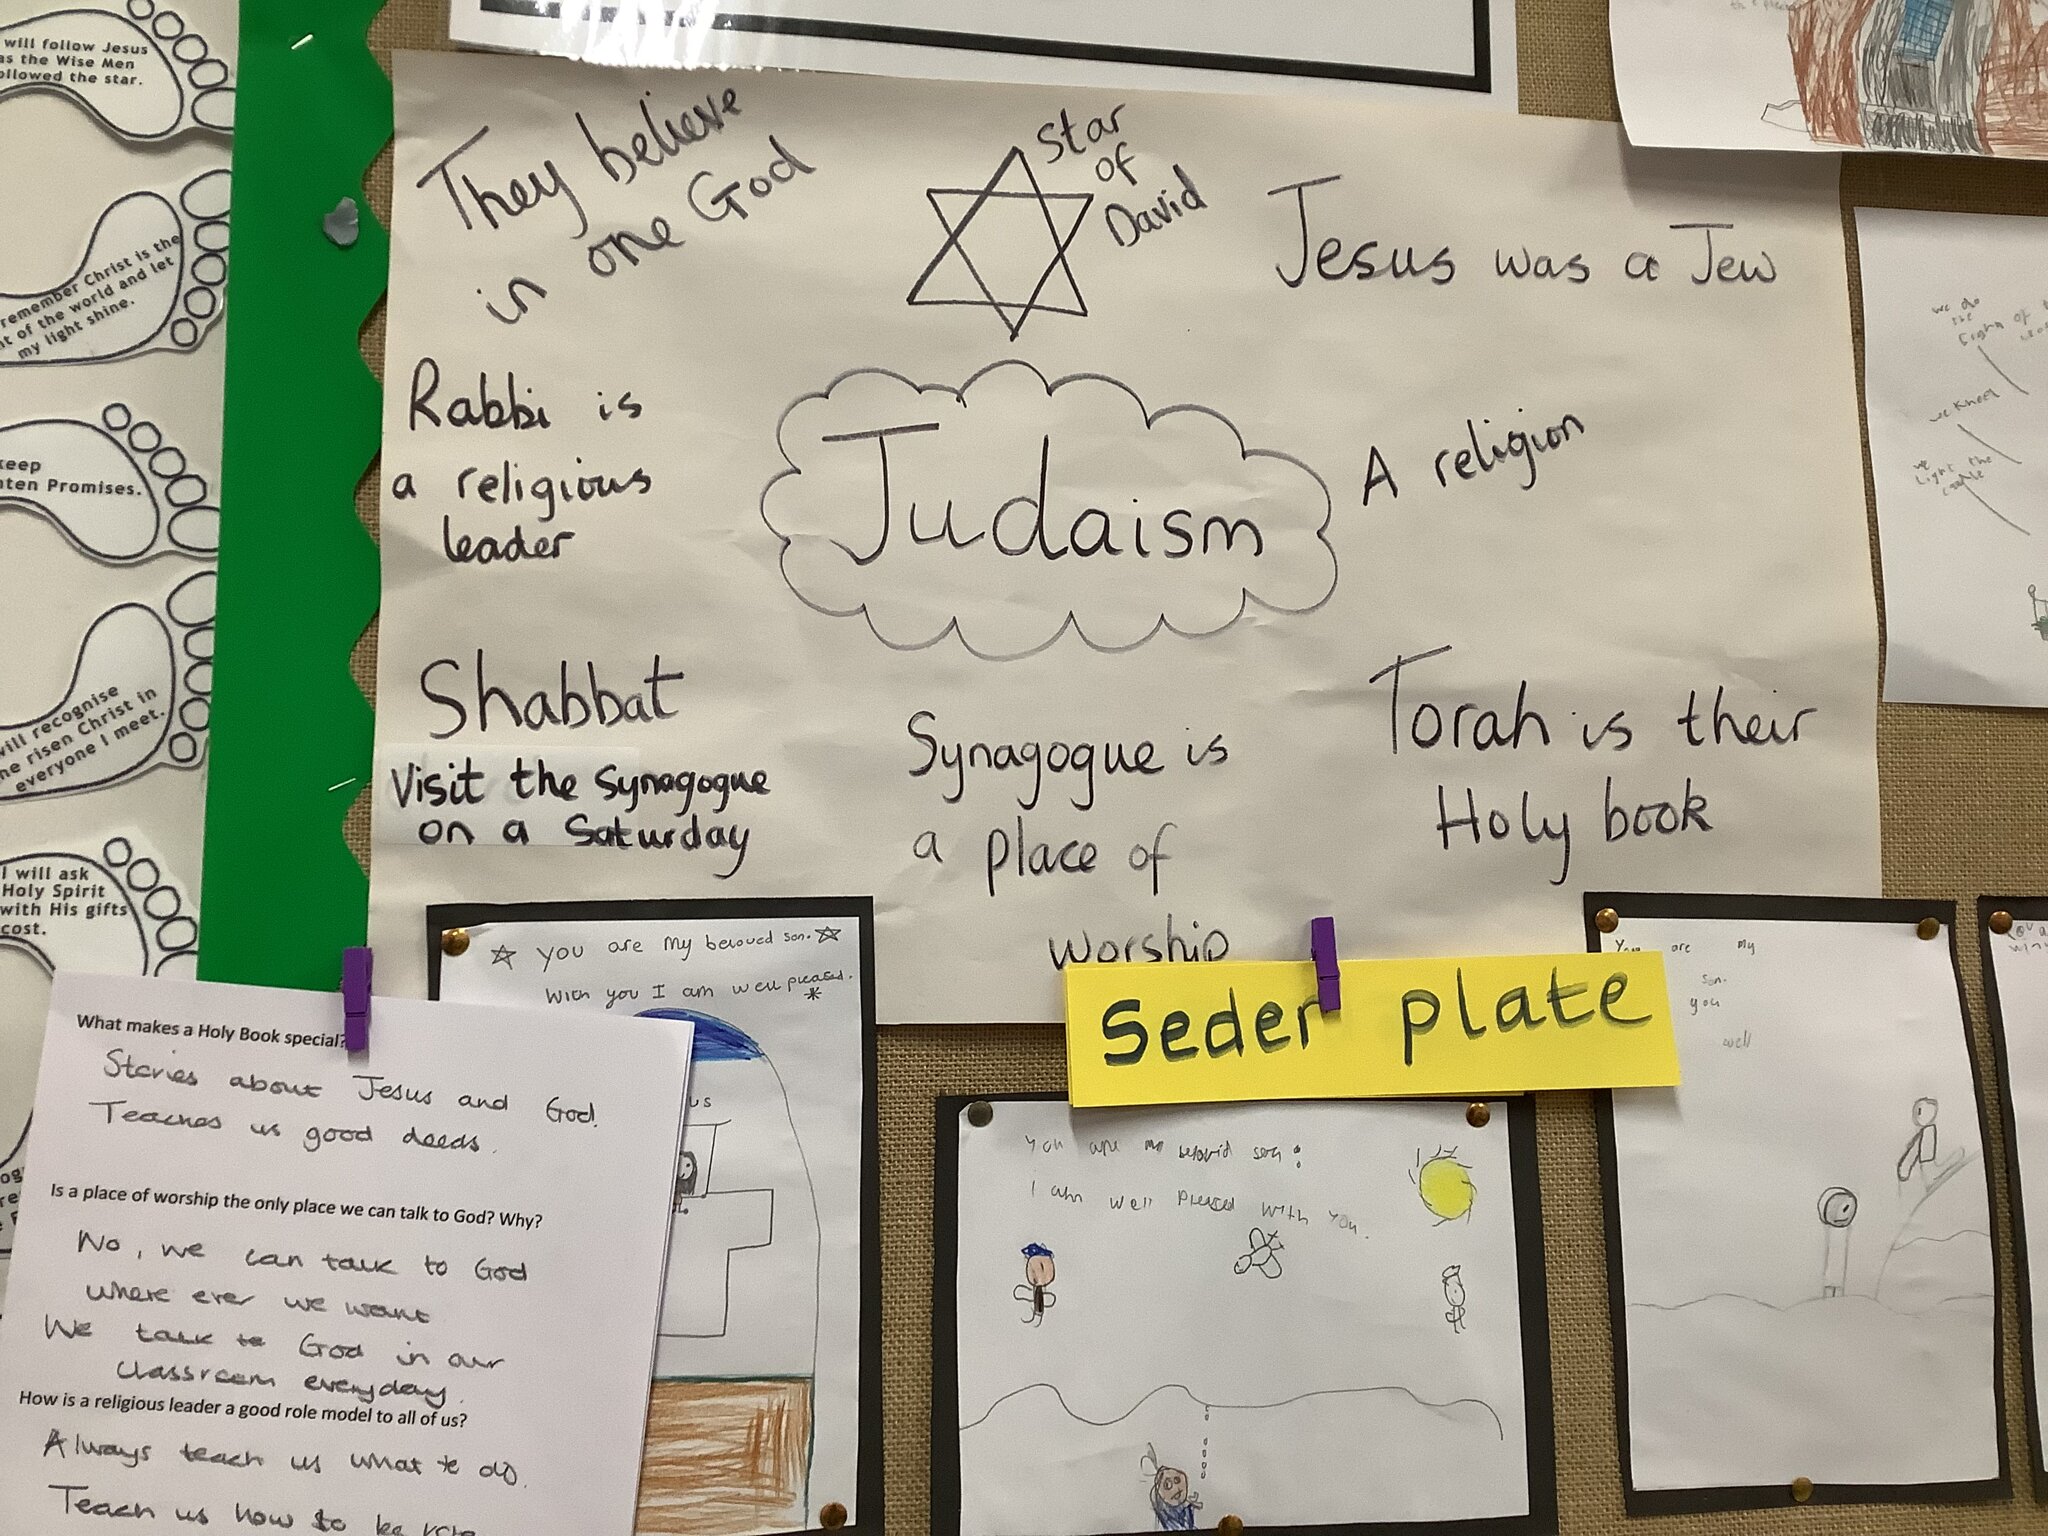 will follow Jesus
as the Wise Men
followed the star.
remember Christ is the
of the world and let
my light shine.
keep
Promises.
will recognise
the risen Christ in
everyone I meet.
I will ask
Holy Spirit
with His gifts
cost.
They believe
in one God
Star
of
David
Jesus was a Jew
Rabbi is
a religious
leader
Judaism
A religion
Shabbat
Visit the Synagogue
on a Saturday
Synagogue is
a place of
worship
Torah is their
Holy book
Seder plate
What makes a Holy Book special?
Stories about Jesus and God.
Teaches us good deeds.
Is a place of worship the only place we can talk to God? Why?
No, we can talk to God
where ever we want
We talk to God in our
classroom everyday
How is a religious leader a good role model to all of us?
Always teach us what to do.
Teach us how to be
You are my beloved son.
With you I am well pleased.
us
You are my belovid son:
I am well pleased with you.
You are my
son.
you
well
we do
the
of
we kneel
we
light the
candle